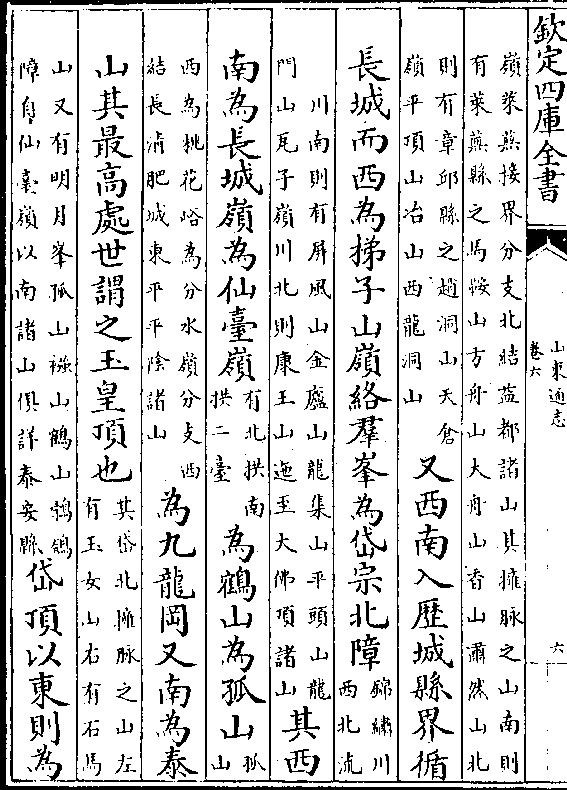 欽定四庫全書
山東通志
卷六
六
嶺萊蕪接界分支北結益都諸山其擁脈之山南則
有萊蕪縣之馬鞍山方舟山大舟山香山肅然山北
則有章邱縣之趙洞山天倉
嶺平頂山冶山西龍洞山
又西南入歷城縣界循
長城而西為梯子山嶺絡羣峯為岱宗北障
錦繡川
西北流
川南則有屏風山金廬山龍集山平頭山龍
門山瓦子嶺川北則康王山迤至大佛頂諸山
其西
南為長城嶺為仙臺嶺
有北拱南
拱二臺
為鶴山為孤山
孤
山
西為桃花峪為分水嶺分支西
結長清肥城東平平陰諸山
為九龍岡又南為泰
山其最高處世謂之玉皇頂也
其岱北擁脈之山左
有玉女山右有石馬
山又有明月峯孤山襁山鶴山鵓鴿
障自仙臺嶺以南諸山俱詳泰安縣
岱頂以東則為